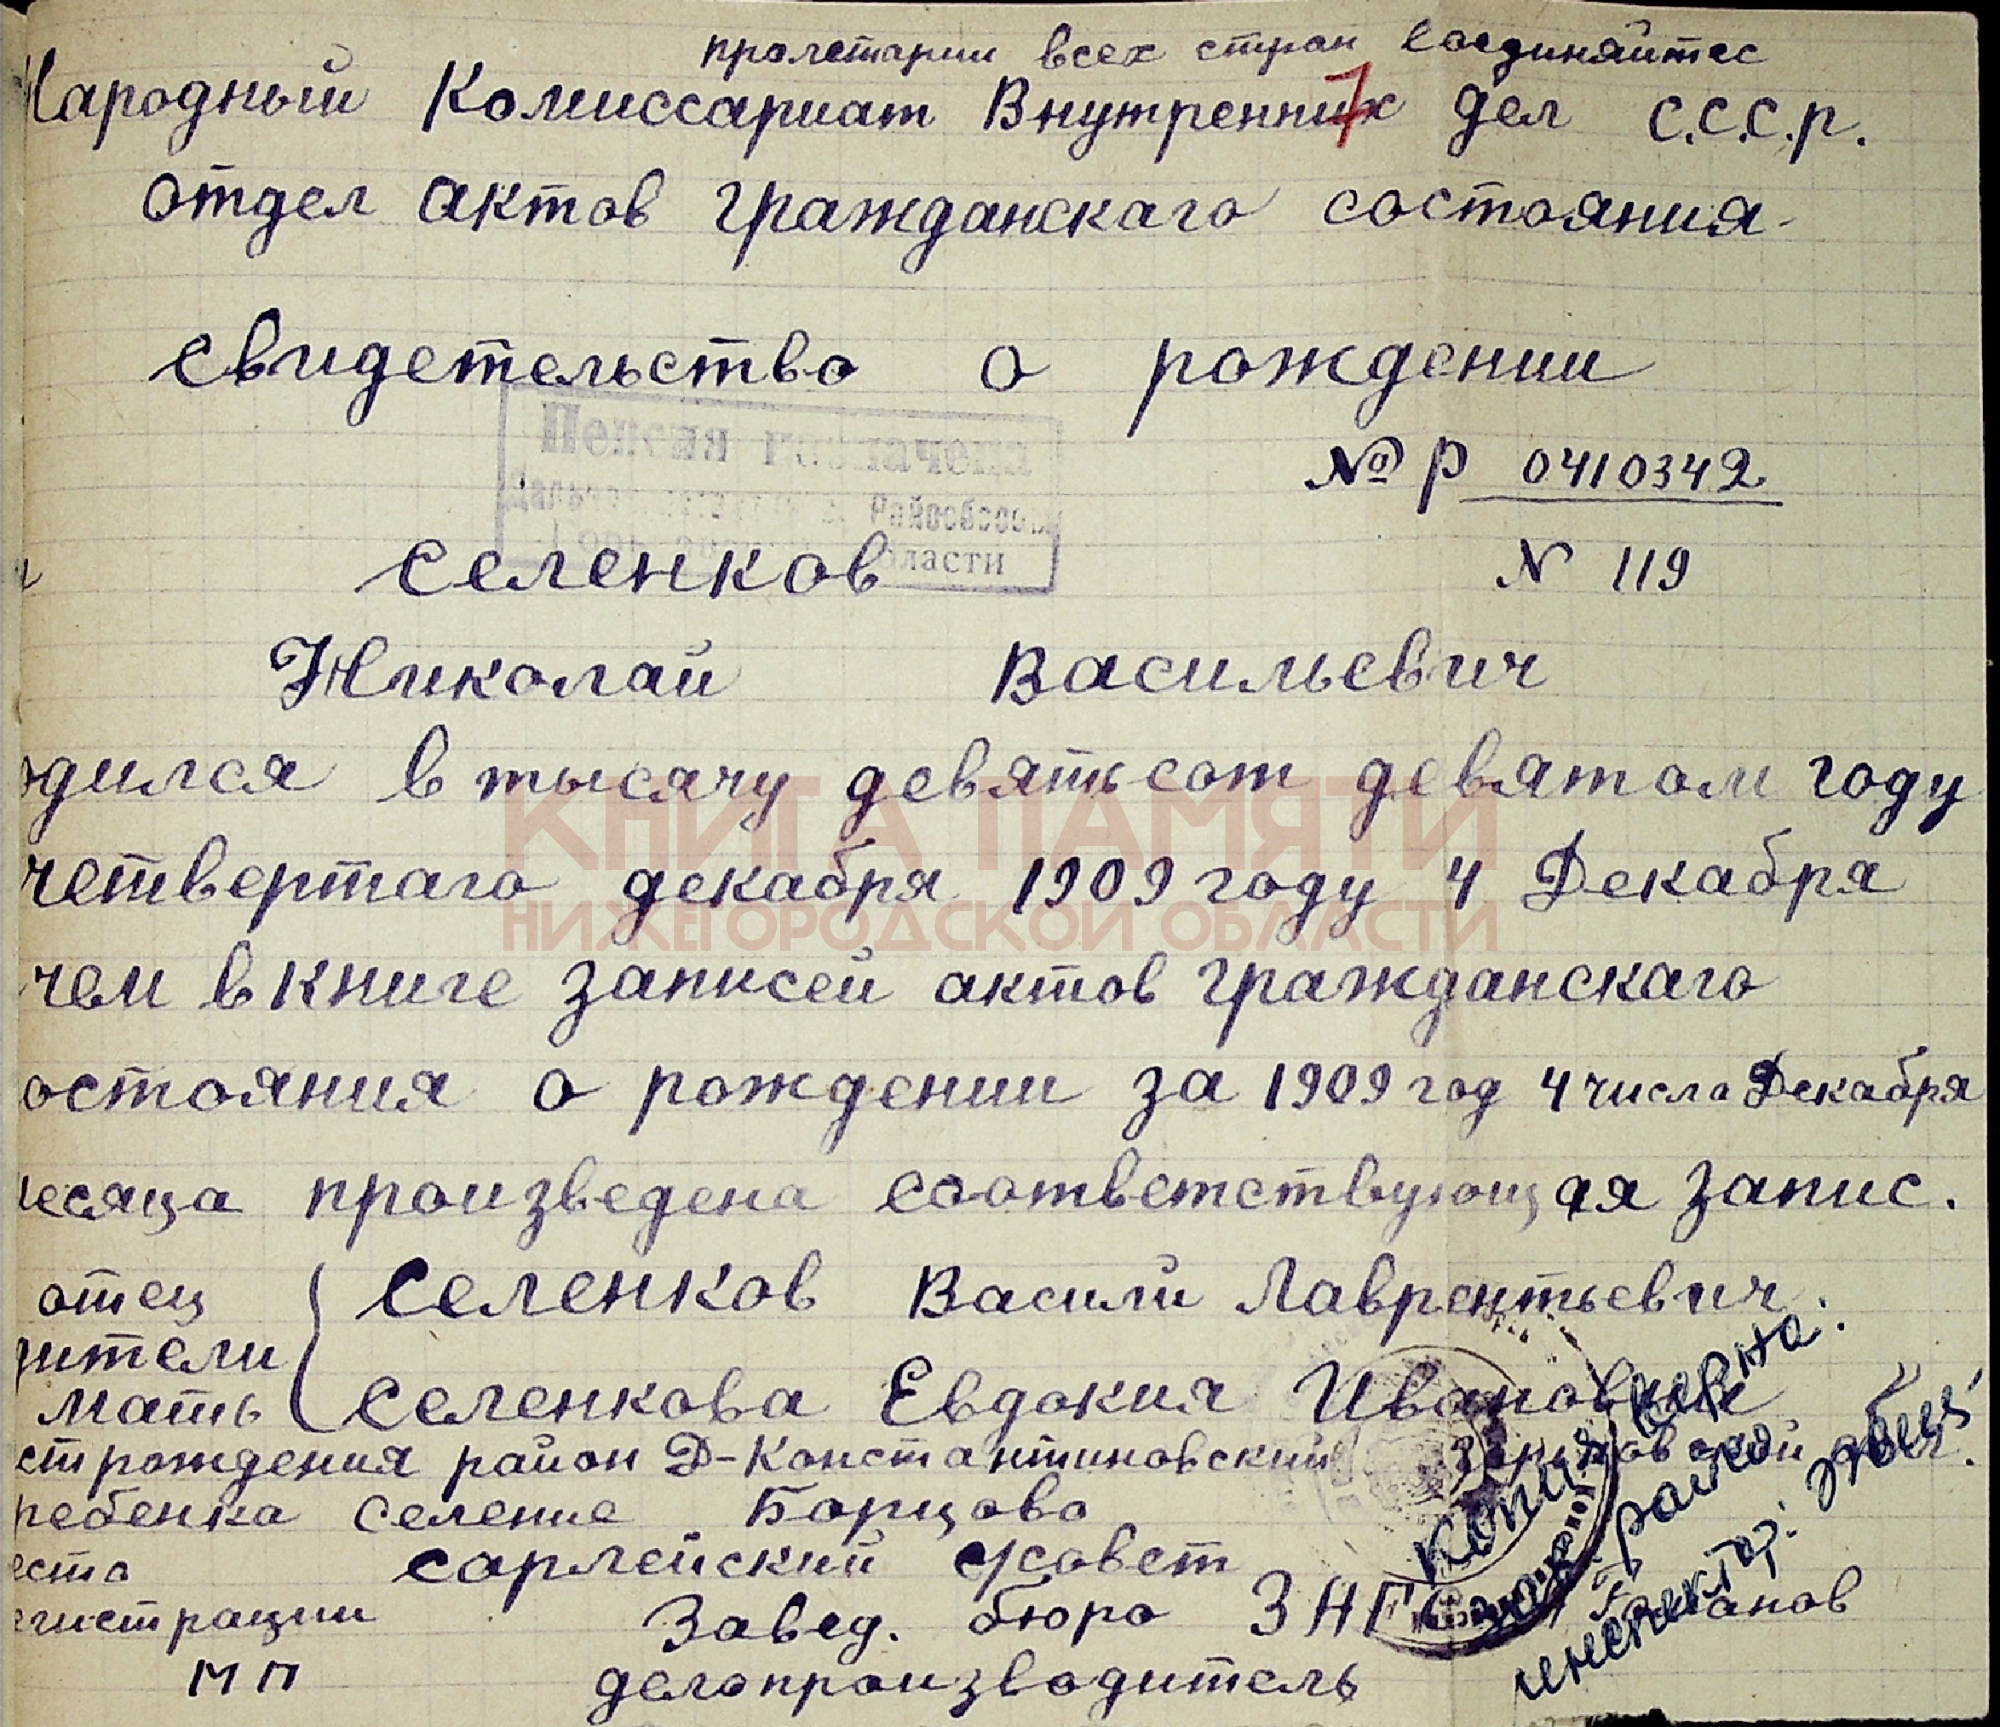 пролетарии всех стран соединяйтес
Народный Комиссариат Внутренних дел С.С.С.р.
7
отдел актов гражданскаго состояния
свидетельство о рождении
Пенсия назначена
Райсобесом
области
№ Р 0410342
N 119
Селенков
Николай Васильевич
одился в тысячу девятьсот девятом году
КНИГА ПАМЯТИ
четвертаго декабря 1909 году 4 Декабря
НИЖЕГОРОДСКОЙ ОБЛАСТИ
чем в книге записей актов гражданскаго
остояния о рождении за 1909 год 4 числа Декабря
месяца произведена соответствующая запис.
отец Селенков Васили Лаврентьевич.
дители
мать Селенкова Евдокия Ивановна
ст рождения район Д-Константиновский Горьковской обл.
ребенка селение Борцово
еста сарлейский с/совет
егистрации Завед. бюро ЗАГС
МП делопроизводитель
Копия верна.
инспектор: